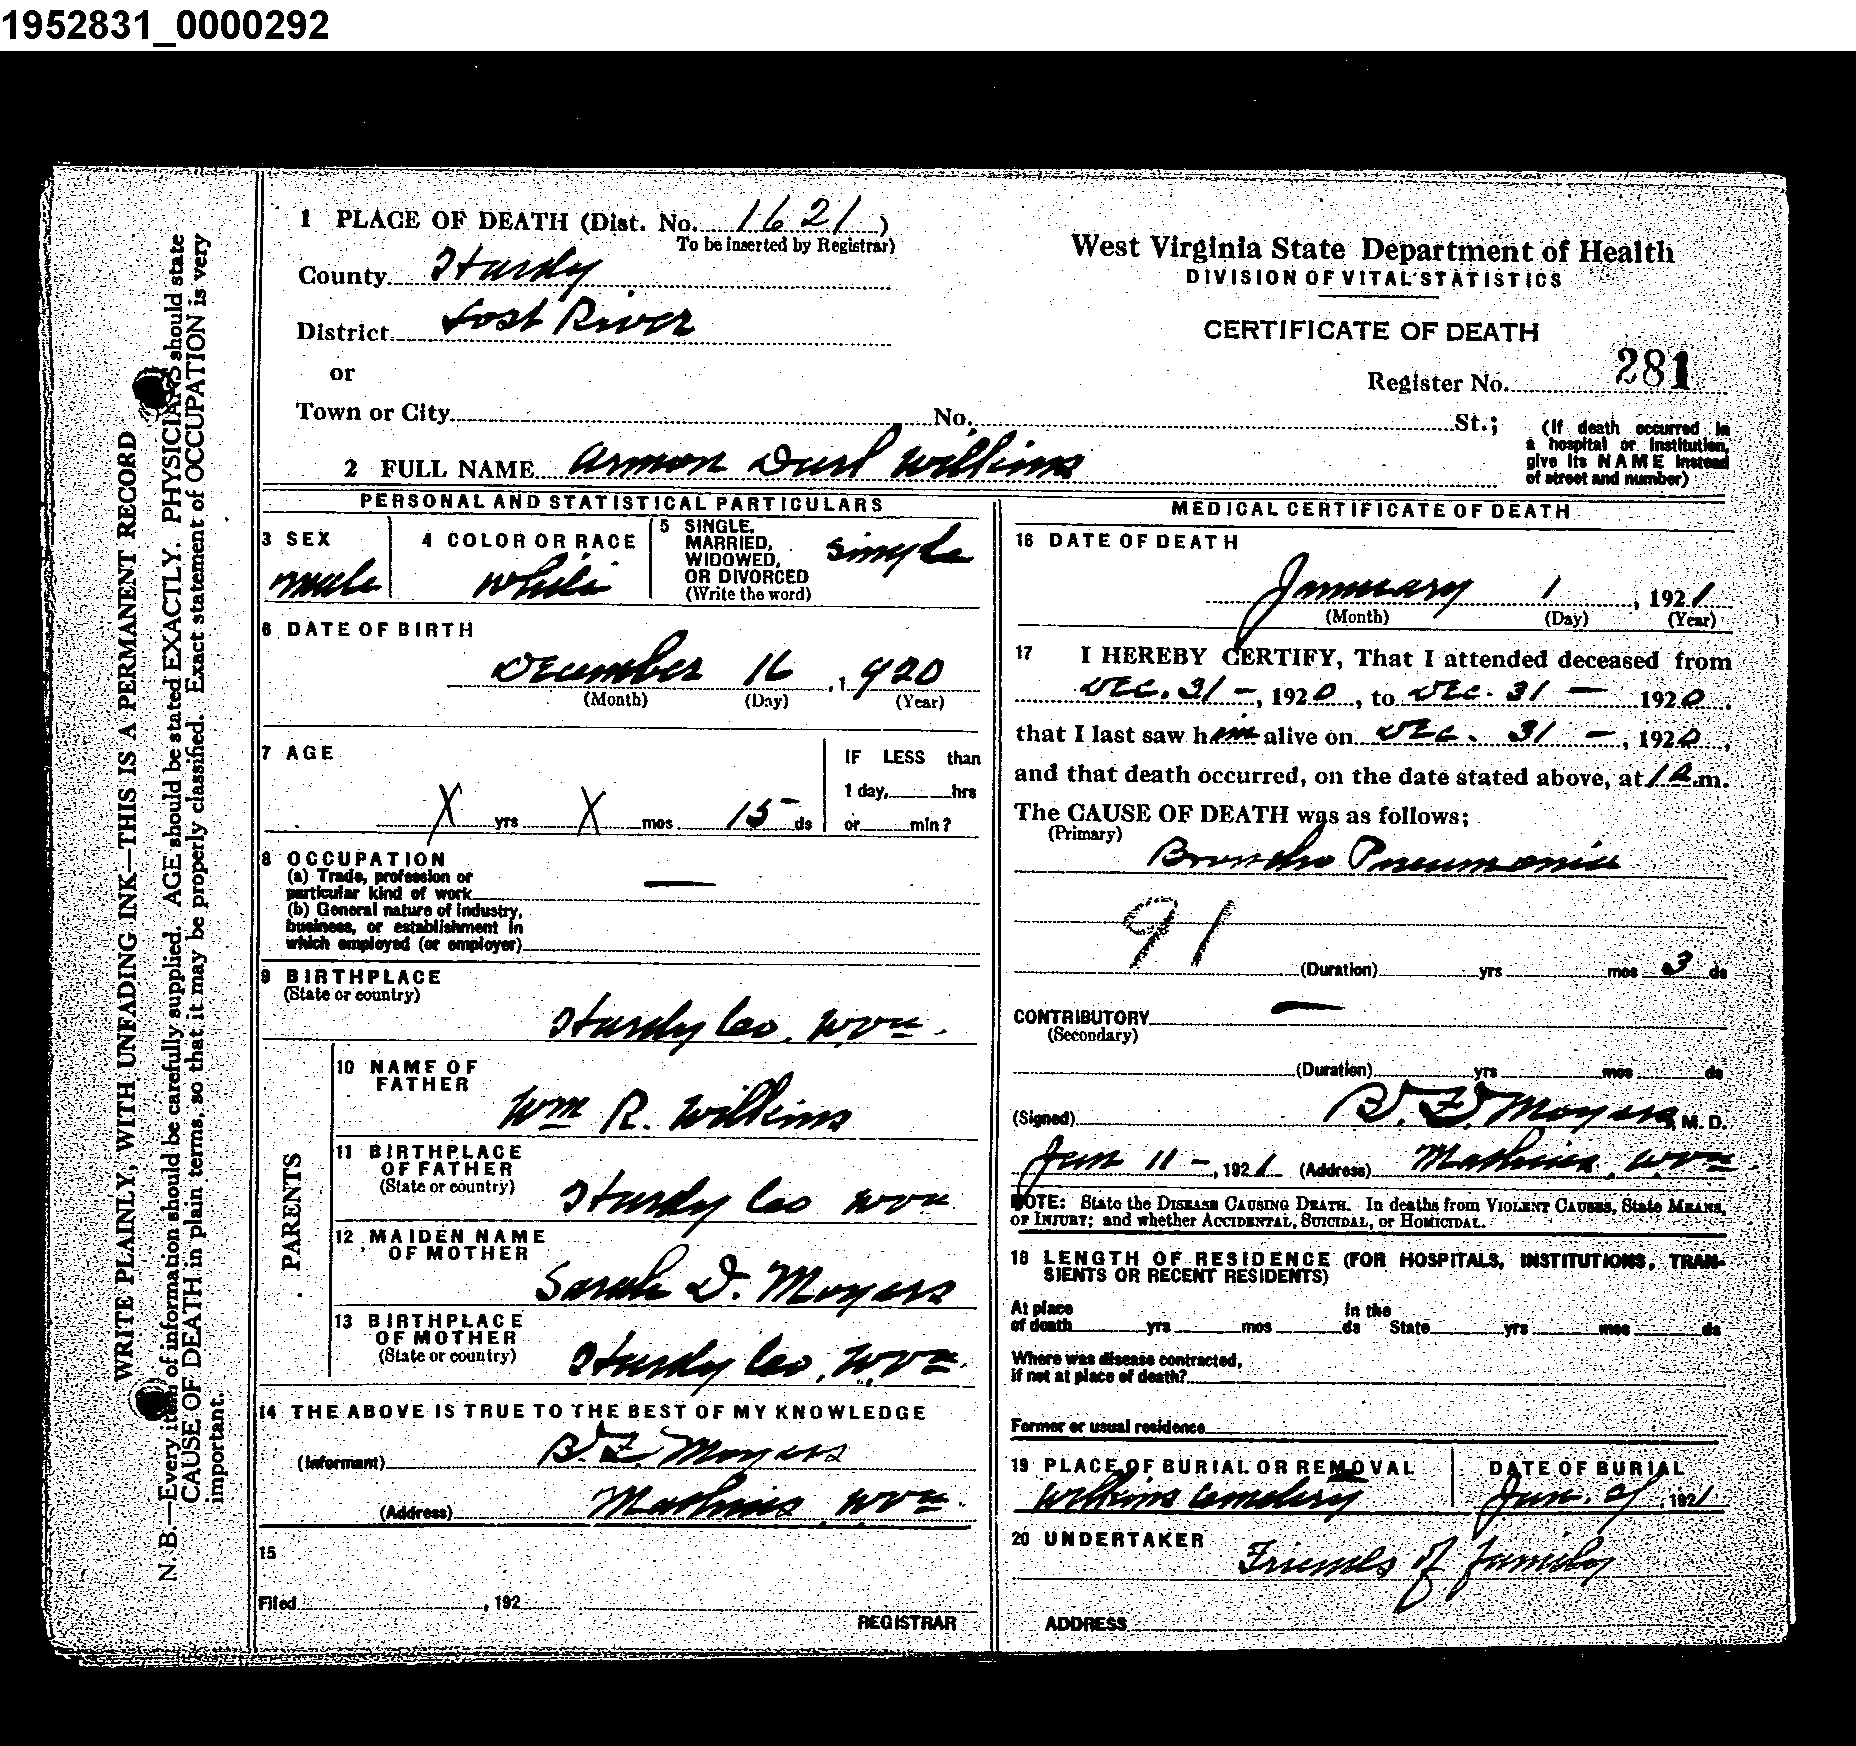 1952831_0000292
1 PLACE OF DEATH (Dist. No. 1621)
To be inserted by Registrar)
County Hardy
District Lost River
or
Town or City No. St.;
(If death occurred in
a hospital or institution,
give its NAME instead
of street and number)
2 FULL NAME Armon Durl Wilkins
West Virginia State Department of Health
DIVISION OF VITAL STATISTICS
CERTIFICATE OF DEATH
Register No. 281
PERSONAL AND STATISTICAL PARTICULARS
3 SEX
male
4 COLOR OR RACE
white
5 SINGLE,
MARRIED,
WIDOWED,
OR DIVORCED
(Write the word)
single
6 DATE OF BIRTH
December 16, 1920
(Month) (Day) (Year)
7 AGE
X yrs X mos 15 ds
IF LESS than
1 day, hrs
or min?
8 OCCUPATION
(a) Trade, profession or
particular kind of work —
(b) General nature of industry,
business, or establishment in
which employed (or employer)
9 BIRTHPLACE
(State or country)
Hardy Co. W.Va.
PARENTS
10 NAME OF
FATHER
Wm R. Wilkins
11 BIRTHPLACE
OF FATHER
(State or country)
Hardy Co W Va
12 MAIDEN NAME
OF MOTHER
Sarah D. Moyers
13 BIRTHPLACE
OF MOTHER
(State or country)
Hardy Co, W.Va.
14 THE ABOVE IS TRUE TO THE BEST OF MY KNOWLEDGE
(Informant) B.F. Moyers
(Address) Mathias W Va.
15
Filed , 192
REGISTRAR
MEDICAL CERTIFICATE OF DEATH
16 DATE OF DEATH
January 1, 1921
(Month) (Day) (Year)
17 I HEREBY CERTIFY, That I attended deceased from
Dec. 31 -, 1920, to Dec. 31 — 1920,
that I last saw him alive on Dec. 31 —, 1920,
and that death occurred, on the date stated above, at 1 a.m.
The CAUSE OF DEATH was as follows;
(Primary)
Broncho Pneumonia
91
(Duration) yrs mos 3 ds
CONTRIBUTORY —
(Secondary)
(Duration) yrs mos ds
(Signed) B. F. Moyers, M. D.
Jan 11 -, 1921 (Address) Mathias, W Va.
NOTE: State the DISEASE CAUSING DEATH. In deaths from VIOLENT CAUSES, State MEANS,
OF INJURY; and whether ACCIDENTAL, SUICIDAL, or HOMICIDAL.
18 LENGTH OF RESIDENCE (FOR HOSPITALS, INSTITUTIONS, TRAN-
SIENTS OR RECENT RESIDENTS)
At place
of death yrs mos ds
In the
State yrs mos ds
Where was disease contracted,
if not at place of death?
Former or usual residence
19 PLACE OF BURIAL OR REMOVAL
Wilkins Cemetery
DATE OF BURIAL
Jan. , 1921
20 UNDERTAKER
Friends of family
ADDRESS
WRITE PLAINLY, WITH UNFADING INK—THIS IS A PERMANENT RECORD
N. B.—Every item of information should be carefully supplied. AGE should be stated EXACTLY. PHYSICIANS should state
CAUSE OF DEATH in plain terms, so that it may be properly classified. Exact statement of OCCUPATION is very
important.